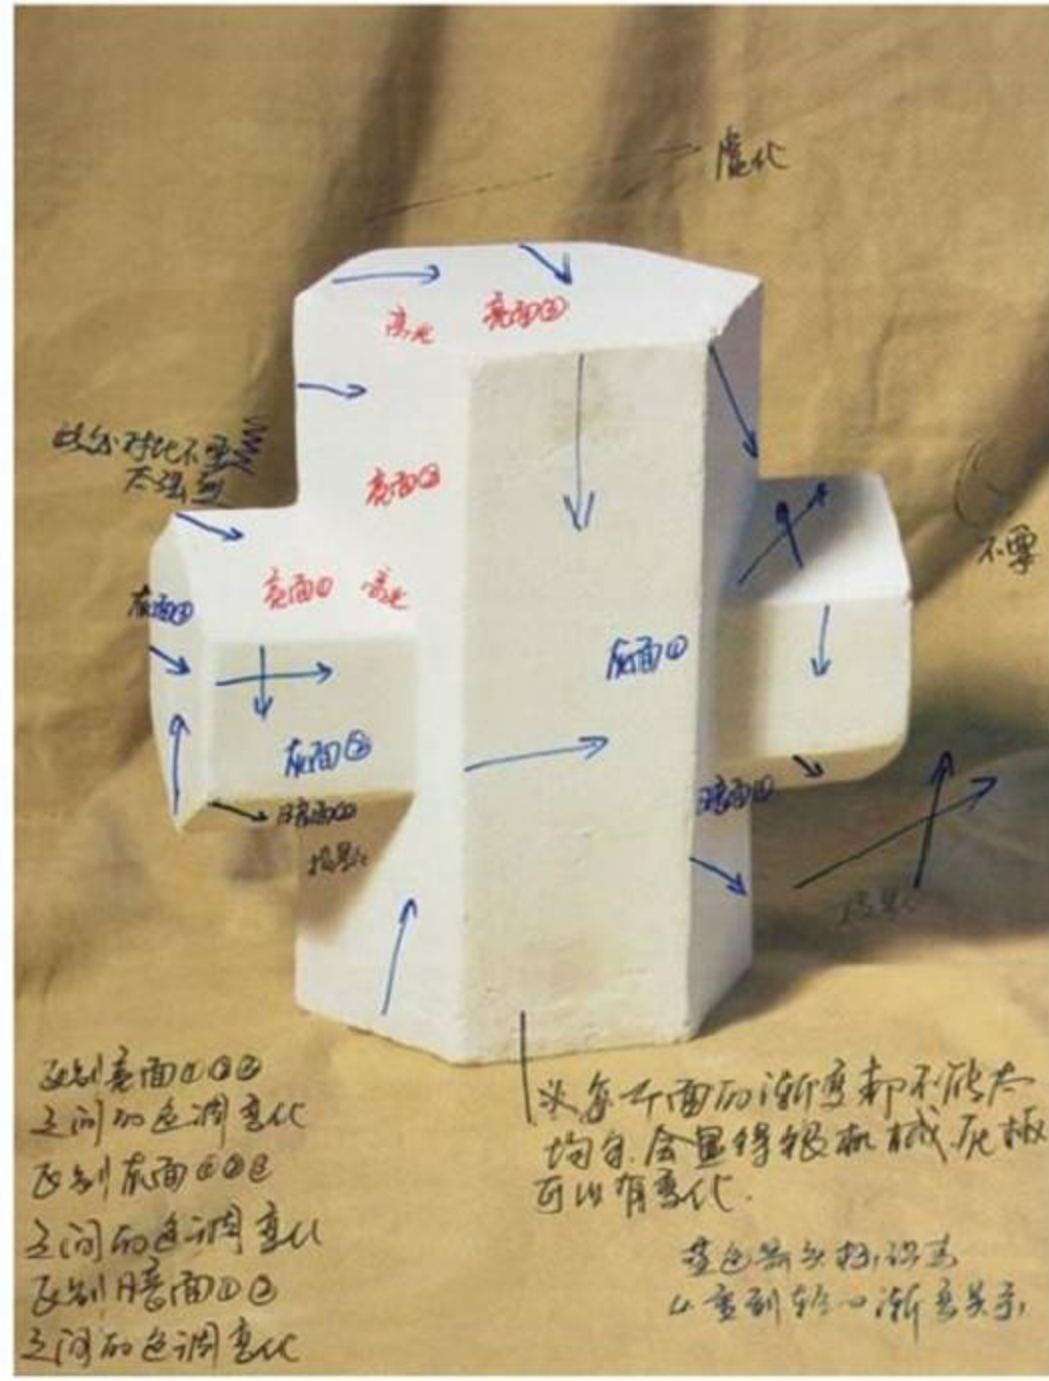 虚化
高光
亮面③
此处对比不要
太强烈
亮面②
不要
灰面③
亮面① 高光
灰面①
灰面②
暗面②
暗面①
投影
投影
区别亮面①②③
之间的色调变化
区别灰面①②③
之间的色调变化
区别暗面①②
之间的色调变化
※每个面的渐变都不能太
均匀.会显得很机械死板
可以有变化.
蓝色箭头标识为
从重到轻的渐变关系